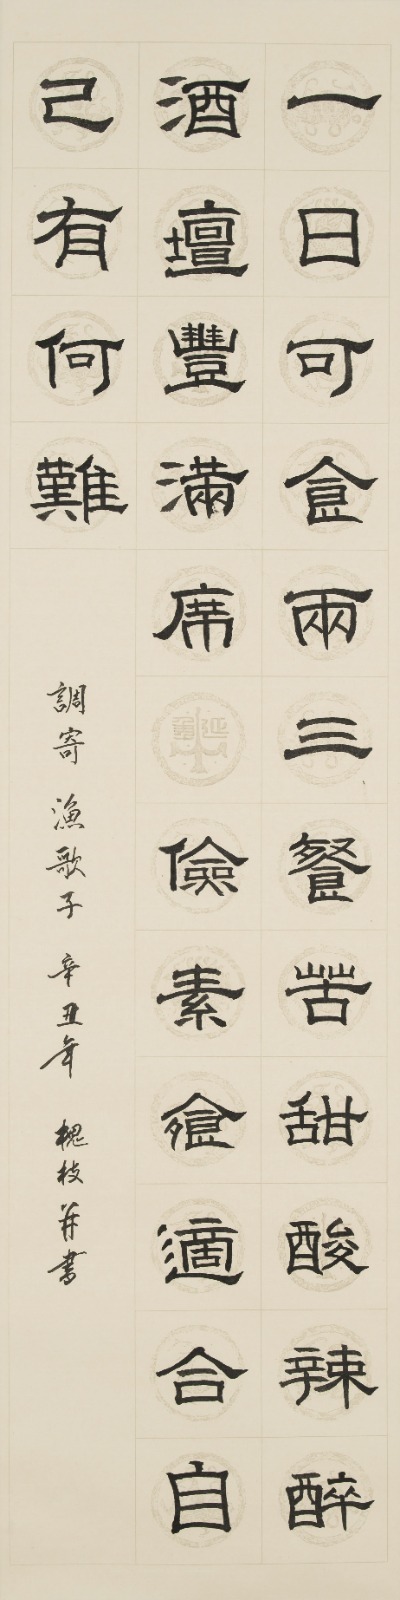 一日可食兩三餐苦甜酸辣醉
酒壇豐滿席 儉素飱適合自
己有何難
調寄 漁歌子 辛丑年 槐枝并書